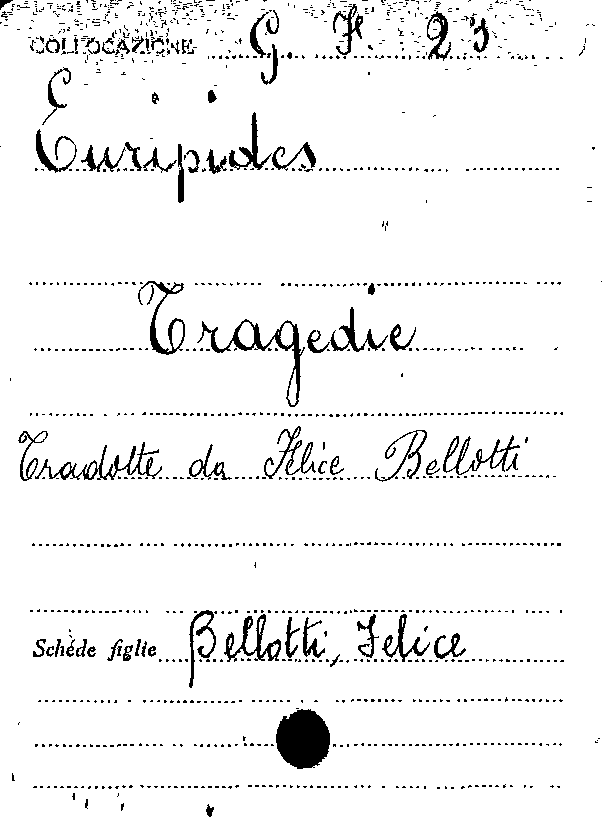 COLLOCAZIONE G. F. 23
Euripides
Tragedie
Tradotte da Felice Bellotti
Schede figlie Bellotti, Felice